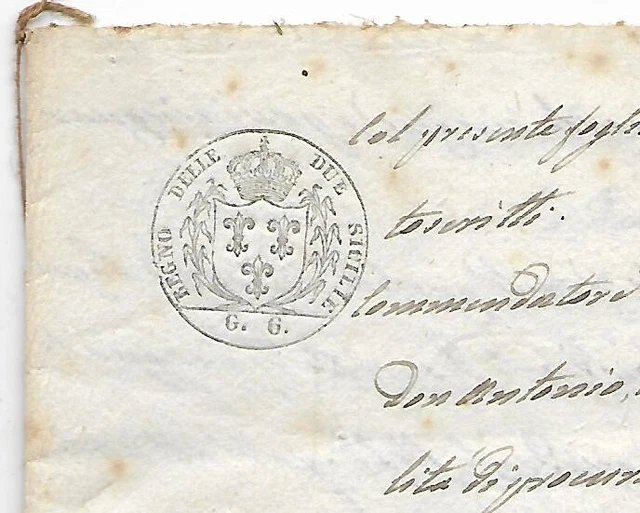 REGNO DELLE DUE SICILIE
G. G.
Col presente fogli
toscritti.
Commendatore
Don Antonio,
lità di procur